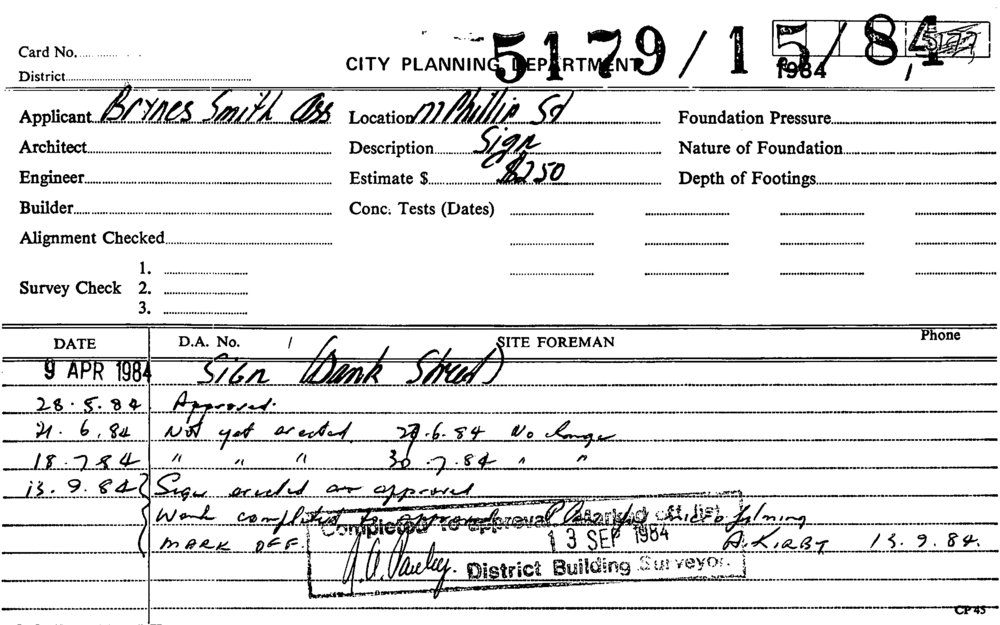 5179/15/84
Card No.
CITY PLANNING DEPARTMENT
1984
District
Applicant Brynes Smith Ass Location Phillip Sd Foundation Pressure
Architect Description Sign Nature of Foundation
Engineer Estimate $ $250 Depth of Footings
Builder Conc. Tests (Dates)
Alignment Checked
1.
Survey Check 2.
3.
DATE D.A. No. / SITE FOREMAN Phone
9 APR 1984 Sign (Bank Street)
28.5.84 Approved.
21.6.84 Not yet erected. 29.6.84 No change
18.7.84 " " " 30.7.84 " "
13.9.84 Sign erected as approved
Work completed to approval Please microfilming
Completed to approval Marking off list
MARK OFF. 13 SEP 1984 A. KIRBY 13.9.84.
District Building Surveyor.
CP 45